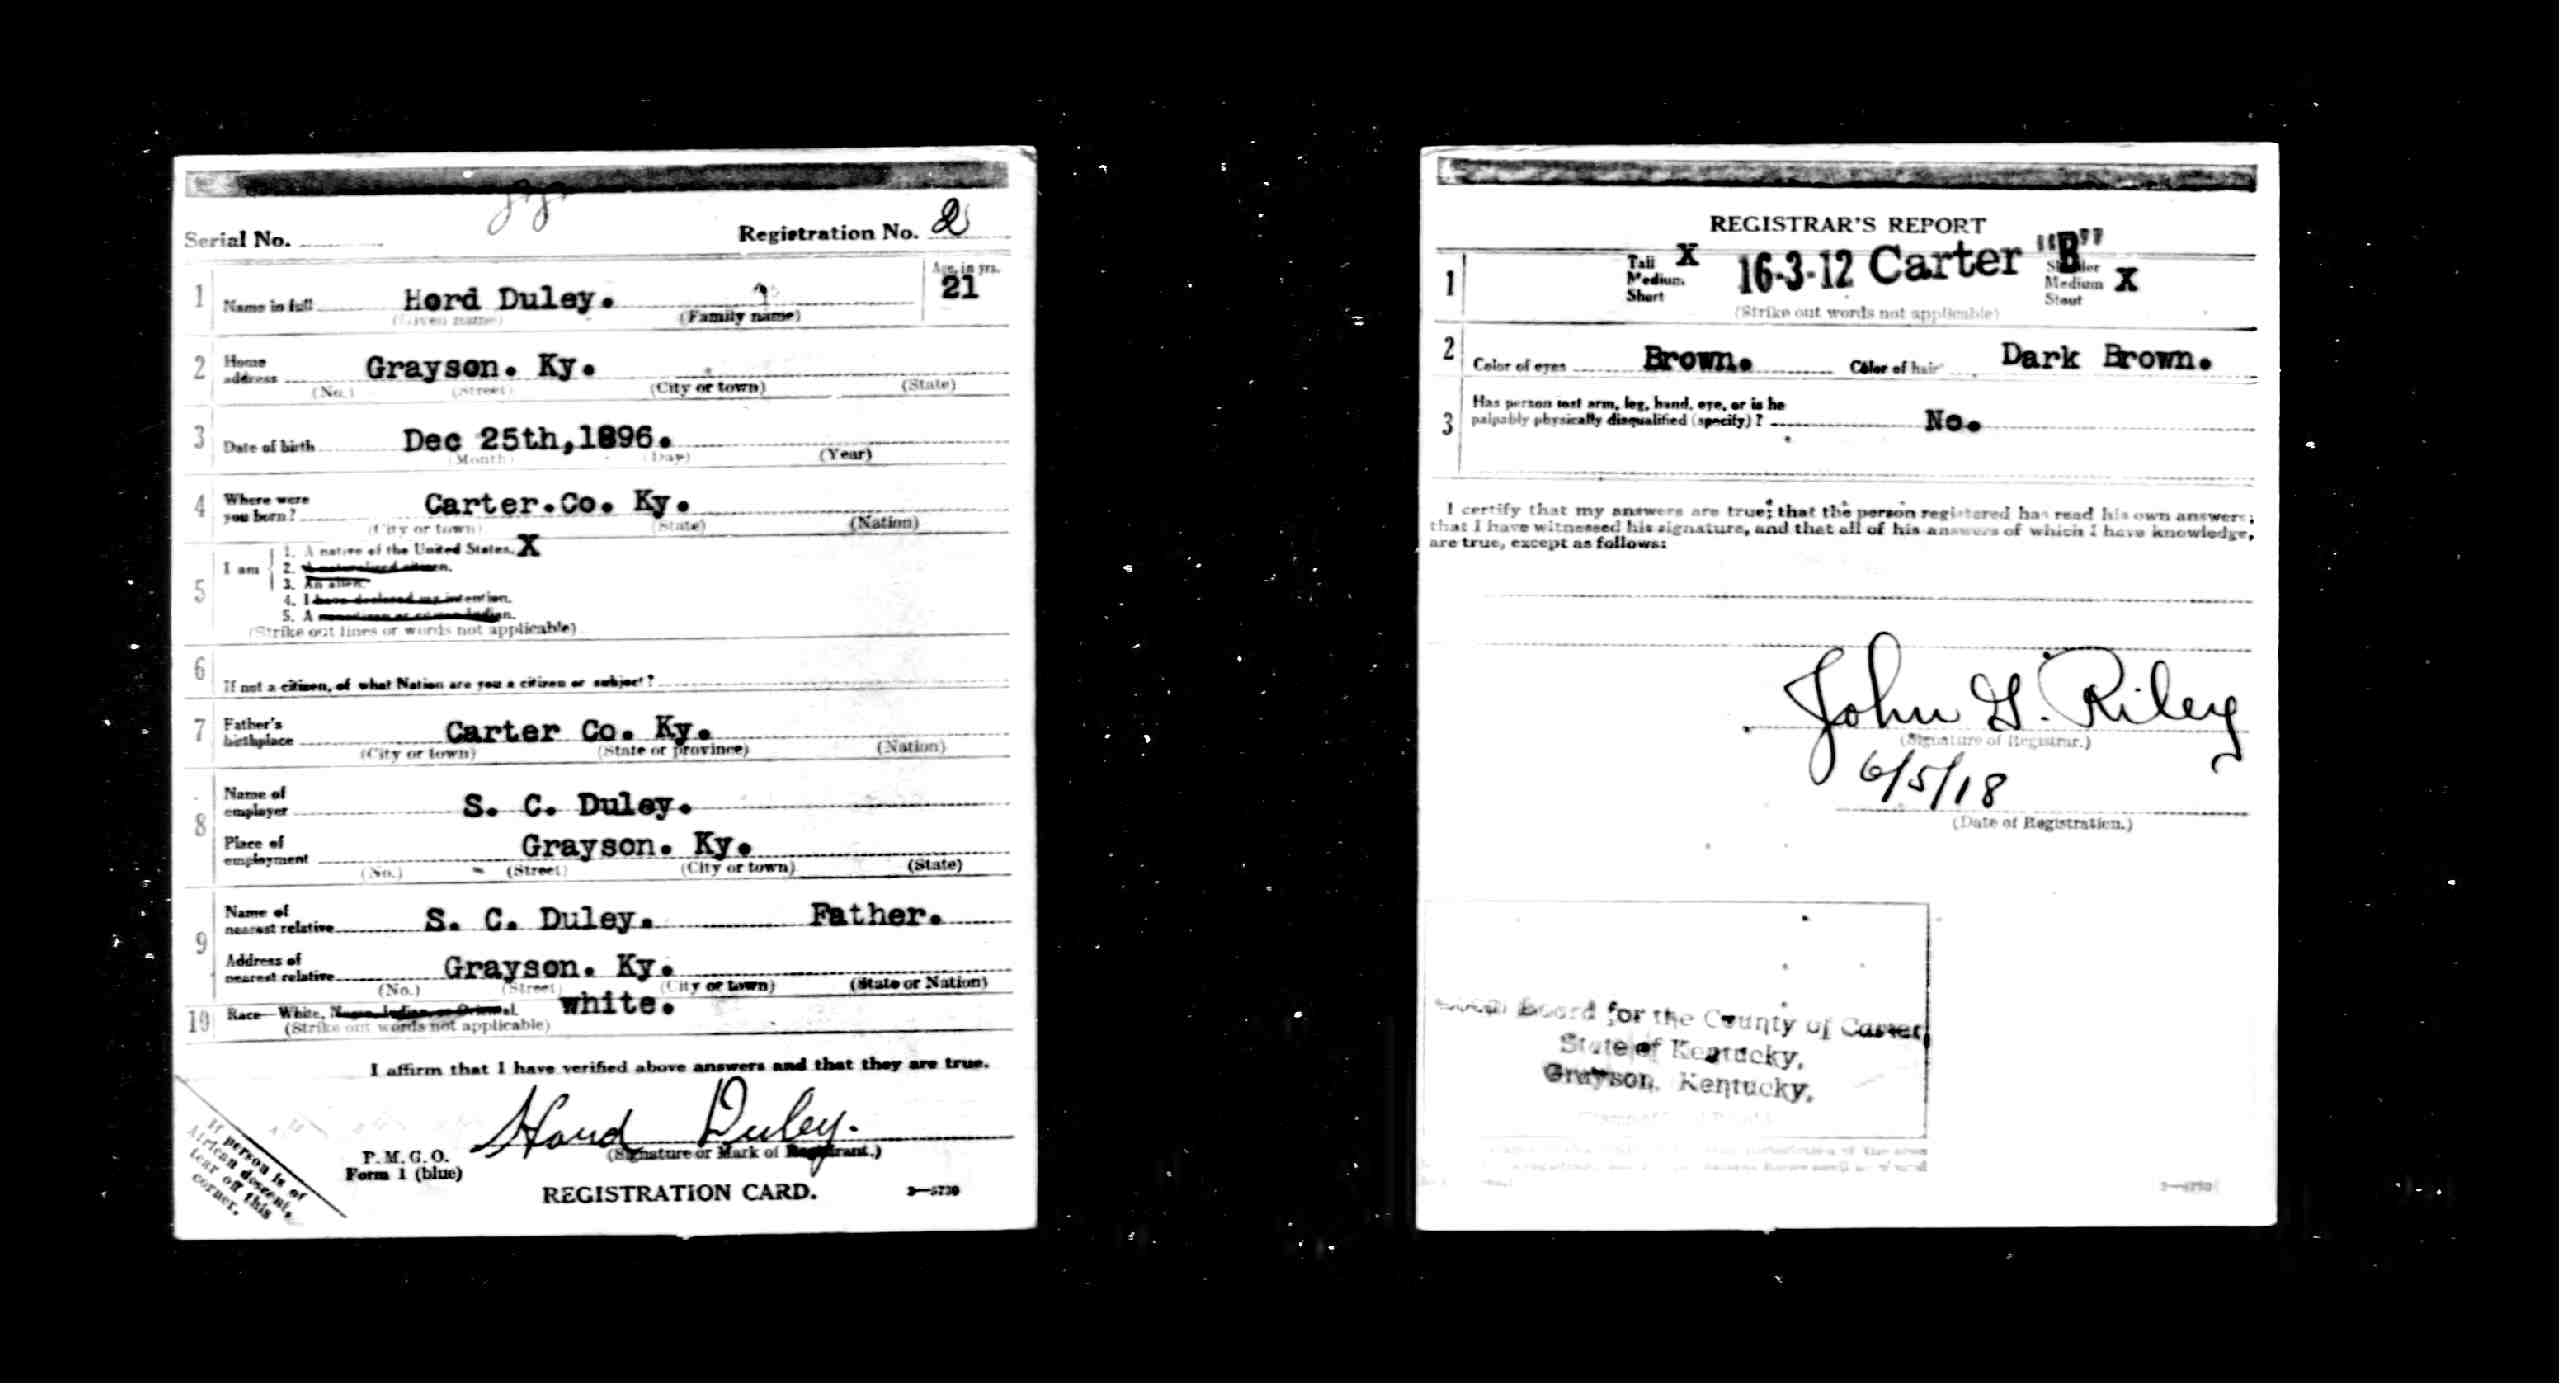 Serial No. Registration No. 2
1 Name in full Hord Duley. Age, in yrs. 21
(Given name) (Family name)
2 Home address Grayson. Ky.
(No.) (Street) (City or town) (State)
3 Date of birth Dec 25th,1896.
(Month) (Day) (Year)
4 Where were you born? Carter.Co. Ky.
(City or town) (State) (Nation)
5 I am
1. A native of the United States. X
2. A naturalized citizen.
3. An alien.
4. I have declared my intention.
5. A noncitizen or citizen Indian.
(Strike out lines or words not applicable)
6 If not a citizen, of what Nation are you a citizen or subject?
7 Father's birthplace Carter Co. Ky.
(City or town) (State or province) (Nation)
8 Name of employer S. C. Duley.
Place of employment Grayson. Ky.
(No.) (Street) (City or town) (State)
9 Name of nearest relative S. C. Duley. Father.
Address of nearest relative Grayson. Ky.
(No.) (Street) (City or town) (State or Nation)
10 Race—White, Negro, Indian, or Oriental. white.
(Strike out words not applicable)
I affirm that I have verified above answers and that they are true.
Hord Duley.
(Signature or Mark of Registrant.)
P. M. G. O.
Form 1 (blue)
REGISTRATION CARD. 3—5730
If person is of
African descent,
tear off this
corner.
REGISTRAR'S REPORT
16-3-12 Carter "B"
1 Tall X Slender
Medium Medium X
Short Stout
(Strike out words not applicable)
2 Color of eyes Brown. Color of hair Dark Brown.
3 Has person lost arm, leg, hand, eye, or is he
palpably physically disqualified (specify)? No.
I certify that my answers are true; that the person registered has read his own answers;
that I have witnessed his signature, and that all of his answers of which I have knowledge,
are true, except as follows:
John G. Riley
(Signature of Registrar.)
6/5/18
(Date of Registration.)
Local Board for the County of Carter,
State of Kentucky,
Grayson, Kentucky,